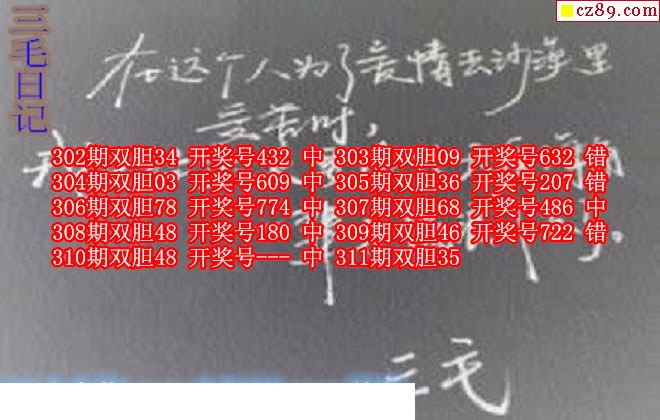 三毛日记
cz89.com
在这个人为了爱情去沙漠里
受苦时,
302期双胆34 开奖号432 中 303期双胆09 开奖号632 错
304期双胆03 开奖号609 中 305期双胆36 开奖号207 错
306期双胆78 开奖号774 中 307期双胆68 开奖号486 中
308期双胆48 开奖号180 中 309期双胆46 开奖号722 错
310期双胆48 开奖号--- 中 311期双胆35
三毛